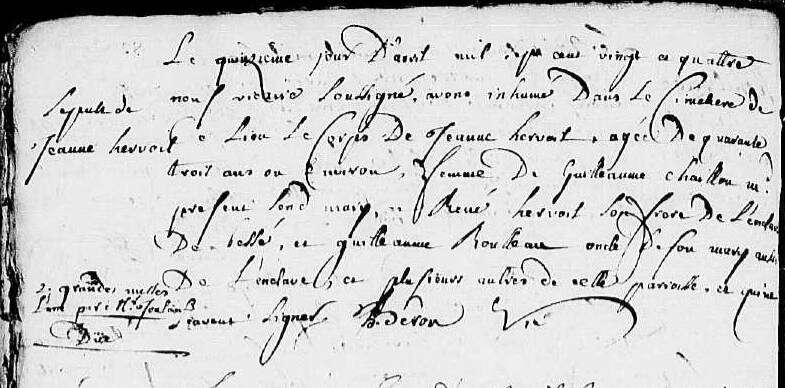 Le quinzieme jour D'avril mil sept cens vingt a quattre
nous vicaire soussigné, avons inhumé Dans Le Cimetiere de
Sepult de
Jeanne hervoit
Ce Lieu Le Corps De Jeanne hervoit, agée De quarante
trois ans ou Environ, femme De Guilleaume Chaillou
present sond mary, René hervoit Son frere De
De bessé, et guilleaume Roulleau oncle De son mary
De L'enclave, et plusieurs autres de cette paroisse, et qui ne
2. grandes messes
L'une par Mr
Sçavent Signer